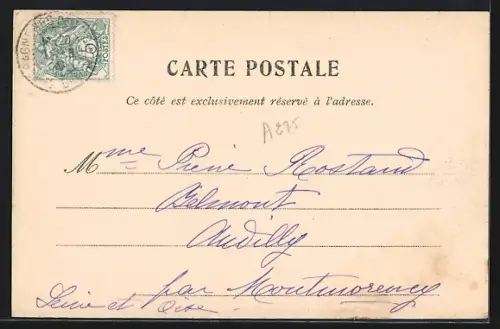 5
POSTES
CARTE POSTALE
Ce côté est exclusivement réservé à l'adresse.
A275
Mme Pierre Rostand
Belmont
Andilly
par Montmorency
Seine et Oise